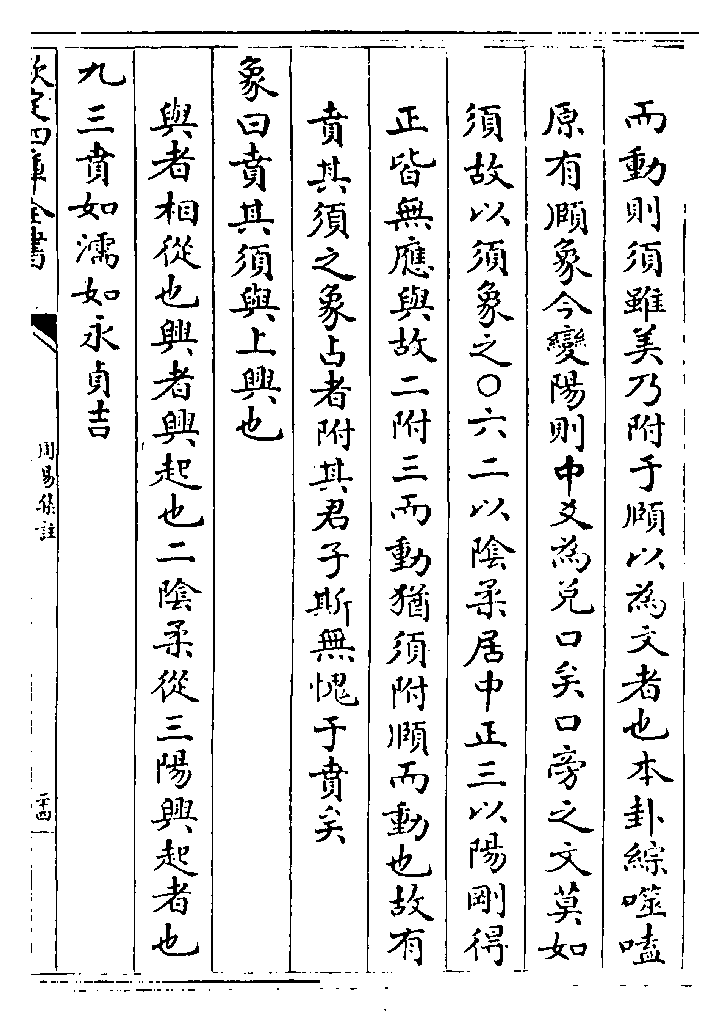 而動則須雖美乃附于頤以為文者也本卦綜噬嗑
原有頤象今變陽則中爻為兌口矣口旁之文莫如
須故以須象之○六二以陰柔居中正三以陽剛得
正皆無應與故二附三而動猶須附頤而動也故有
賁其須之象占者附其君子斯無愧于賁矣
象曰賁其須與上興也
與者相從也興者興起也二陰柔從三陽興起者也
九三賁如濡如永貞吉
欽定四庫全書
周易集註
二十四